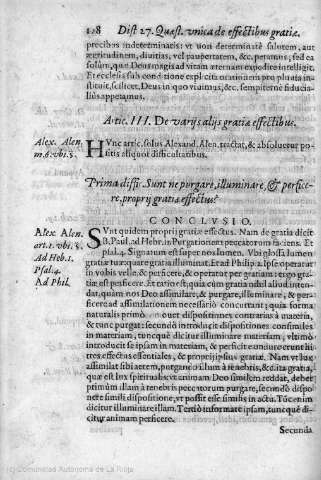 128 Dist 27. Quæst. vnica de effectibus gratiæ.
precibus indeterminatis: vt uoti determinatè salutem, aut
ægritudinem, diuitias, vel paupertatem, &c. petamus, sed ea
solùm, quæ Deus magis ad vitam æternam expedire intelligit.
Et ecclesia sub conditione explicita orationem pro plurais in-
stituit, scilicet, Deus in quo viuimus, &c. sempiternè fiducia-
liùs appetamus.
Artic. III. De varijs alijs gratiæ effectibus.
Alex. Alen.
m.6. vbi. s.
HVnc artic. solus Alexand. Alen. tractat, & absoluetur po-
sitis aliquot difficultatibus.
Prima diffi. Sunt ne purgare, illuminare, & perfice-
re, proprij gratiæ effectus?
CONCLVSIO.
Alex Alen.
art.1. vbi. s.
Ad Heb.1.
Psal.4.
Ad Phil.
SVnt quidem proprij gratiæ effectus. Nam de gratia dicit
B. Paul. ad Hebr. in Purgationem peccatorum faciens. Et
psal. 4. Signatum est super nos lumen. Vbi glossa, lumen
gratiæ tuæ quare gratia illuminat. Et ad Philip. 2. Ipse operatur
in vobis velle, & perficere, & operatur per gratiam: ergo gra-
tiæ est perficere. Et ratio est, quia cum gratia nihil aliud inten-
dat, quàm nos Deo assimilare, & purgare, illuminare, & per-
ficere ad assimilationem necessariò concurrant; quia forma
naturalis primò ouet dispositiones contrarias à materia,
& tunc purgat: secundò introducit dispositiones consimiles
in materiam, tuncque dicitur illuminare materiam; vltimò
introducit se ipsam in materiam, & perficit eam: uere erunt hi
tres effectus essentiales, & proprij ipsius gratiæ. Nam vt lux
assimilat sibi aërem, purgans illum à tenebris, &c. ita gratia,
quæ est lux spiritualis, vt animam Deo similem reddat, debet
primùm illam à tenebris peccatorum purgare, secundò dispo-
nere simili dispositione, vt possit esse similis in actu. Tunc enim
dicitur illuminare illam. Tertiò informare ipsam, tuncque di-
citur animam perficere.
Secunda
(c) Comunidad Autónoma de La Rioja